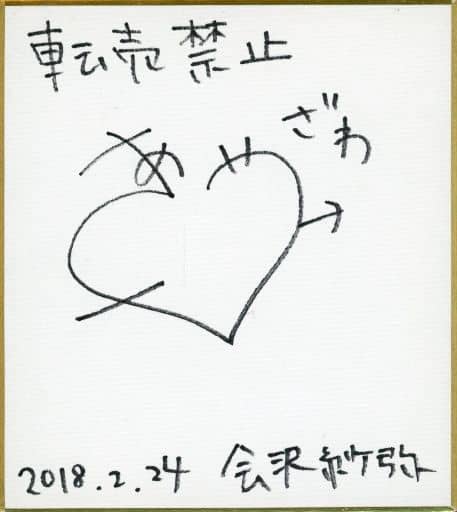 転売禁止
ざわ
2018.2.24 会沢紗弥